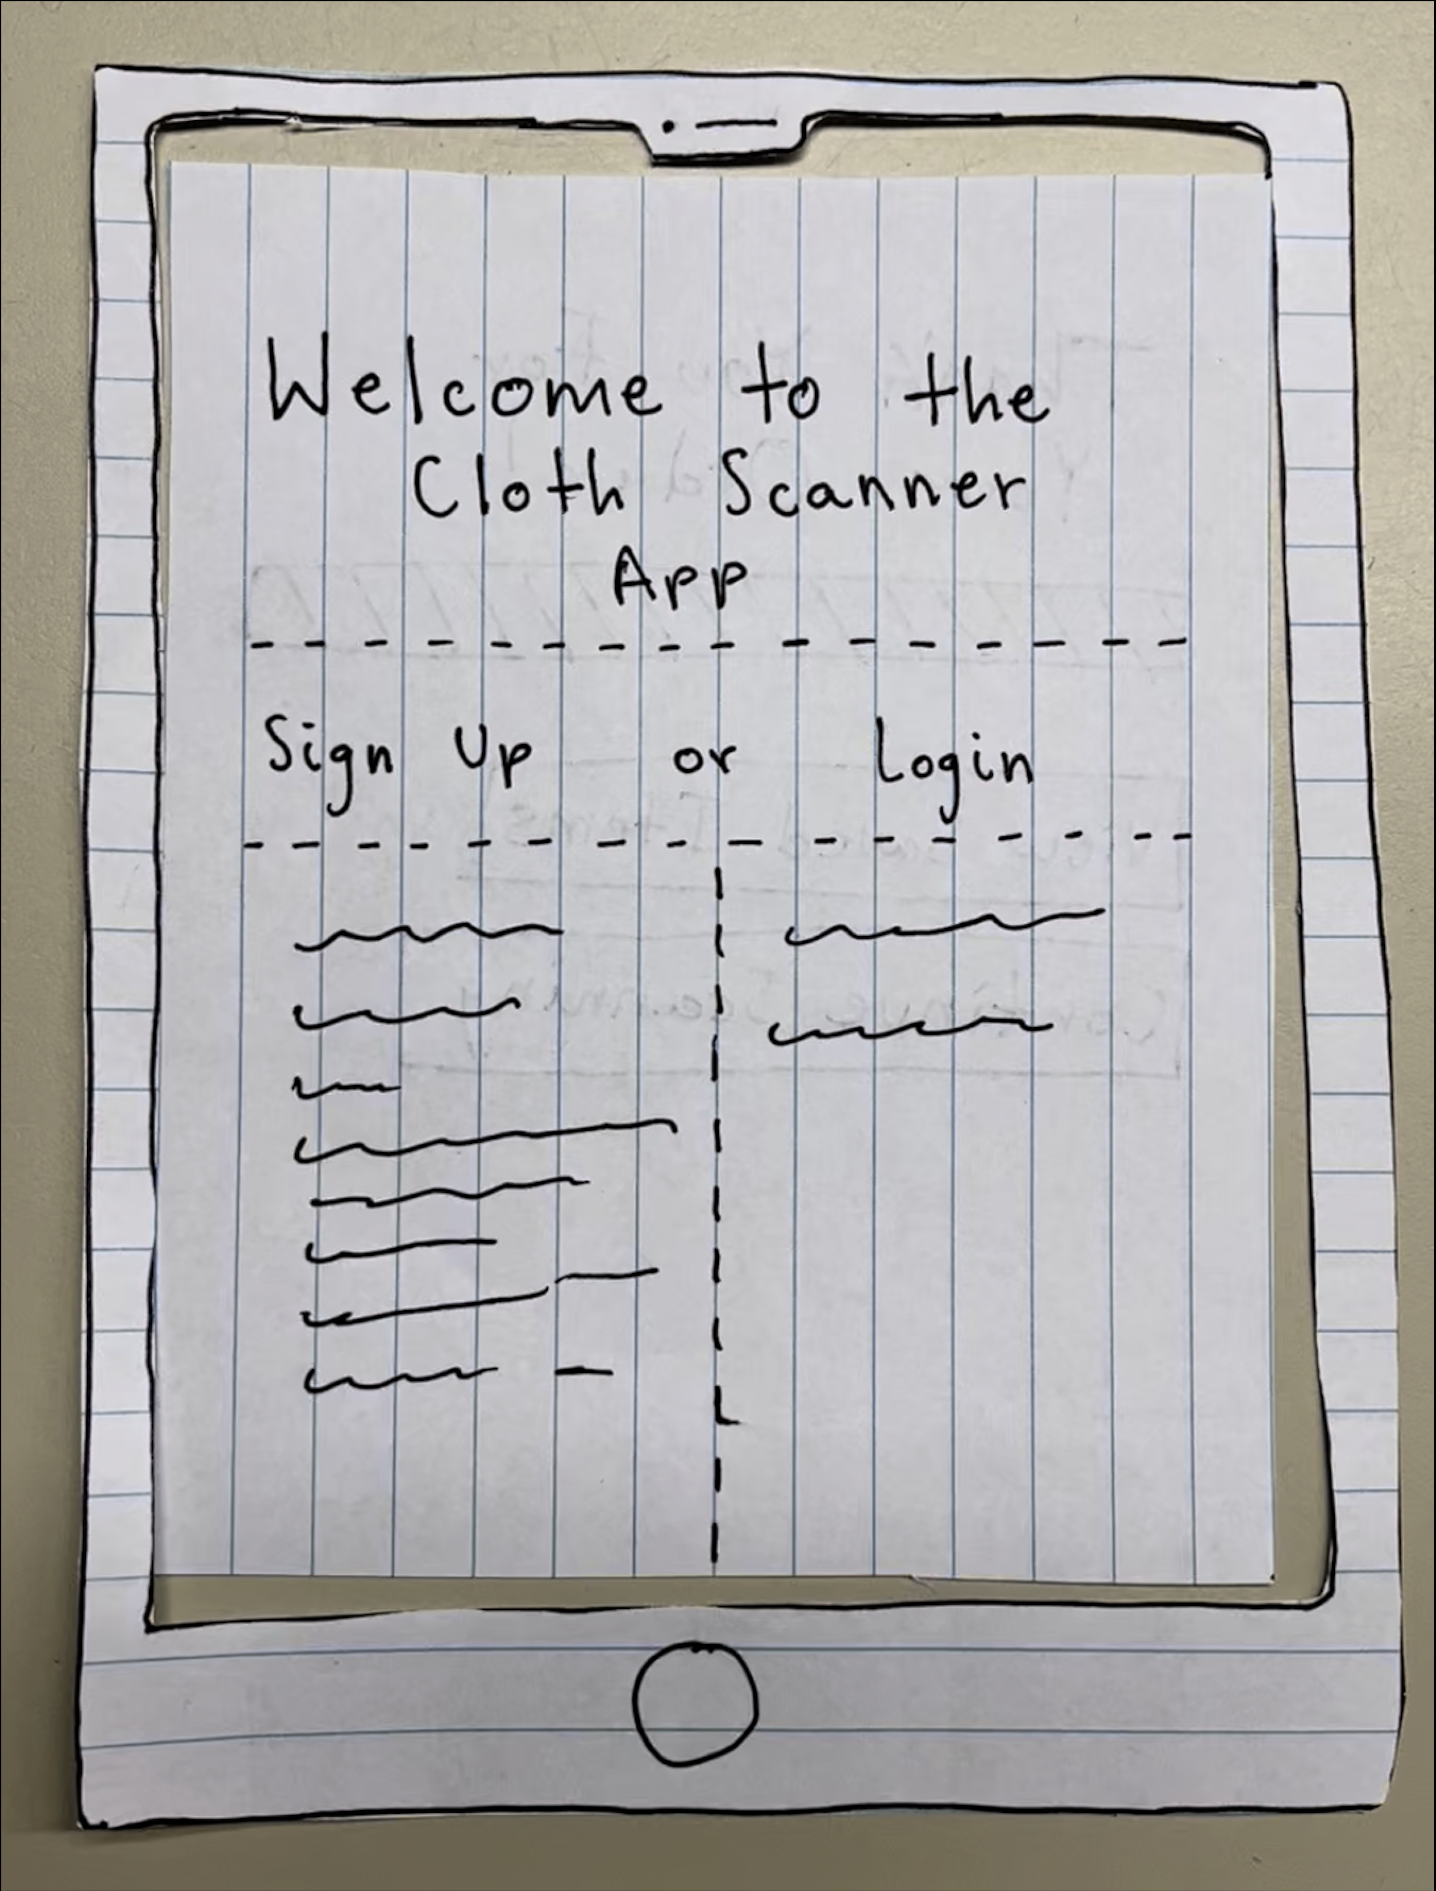 Welcome to the
Cloth Scanner
App
Sign Up or Login